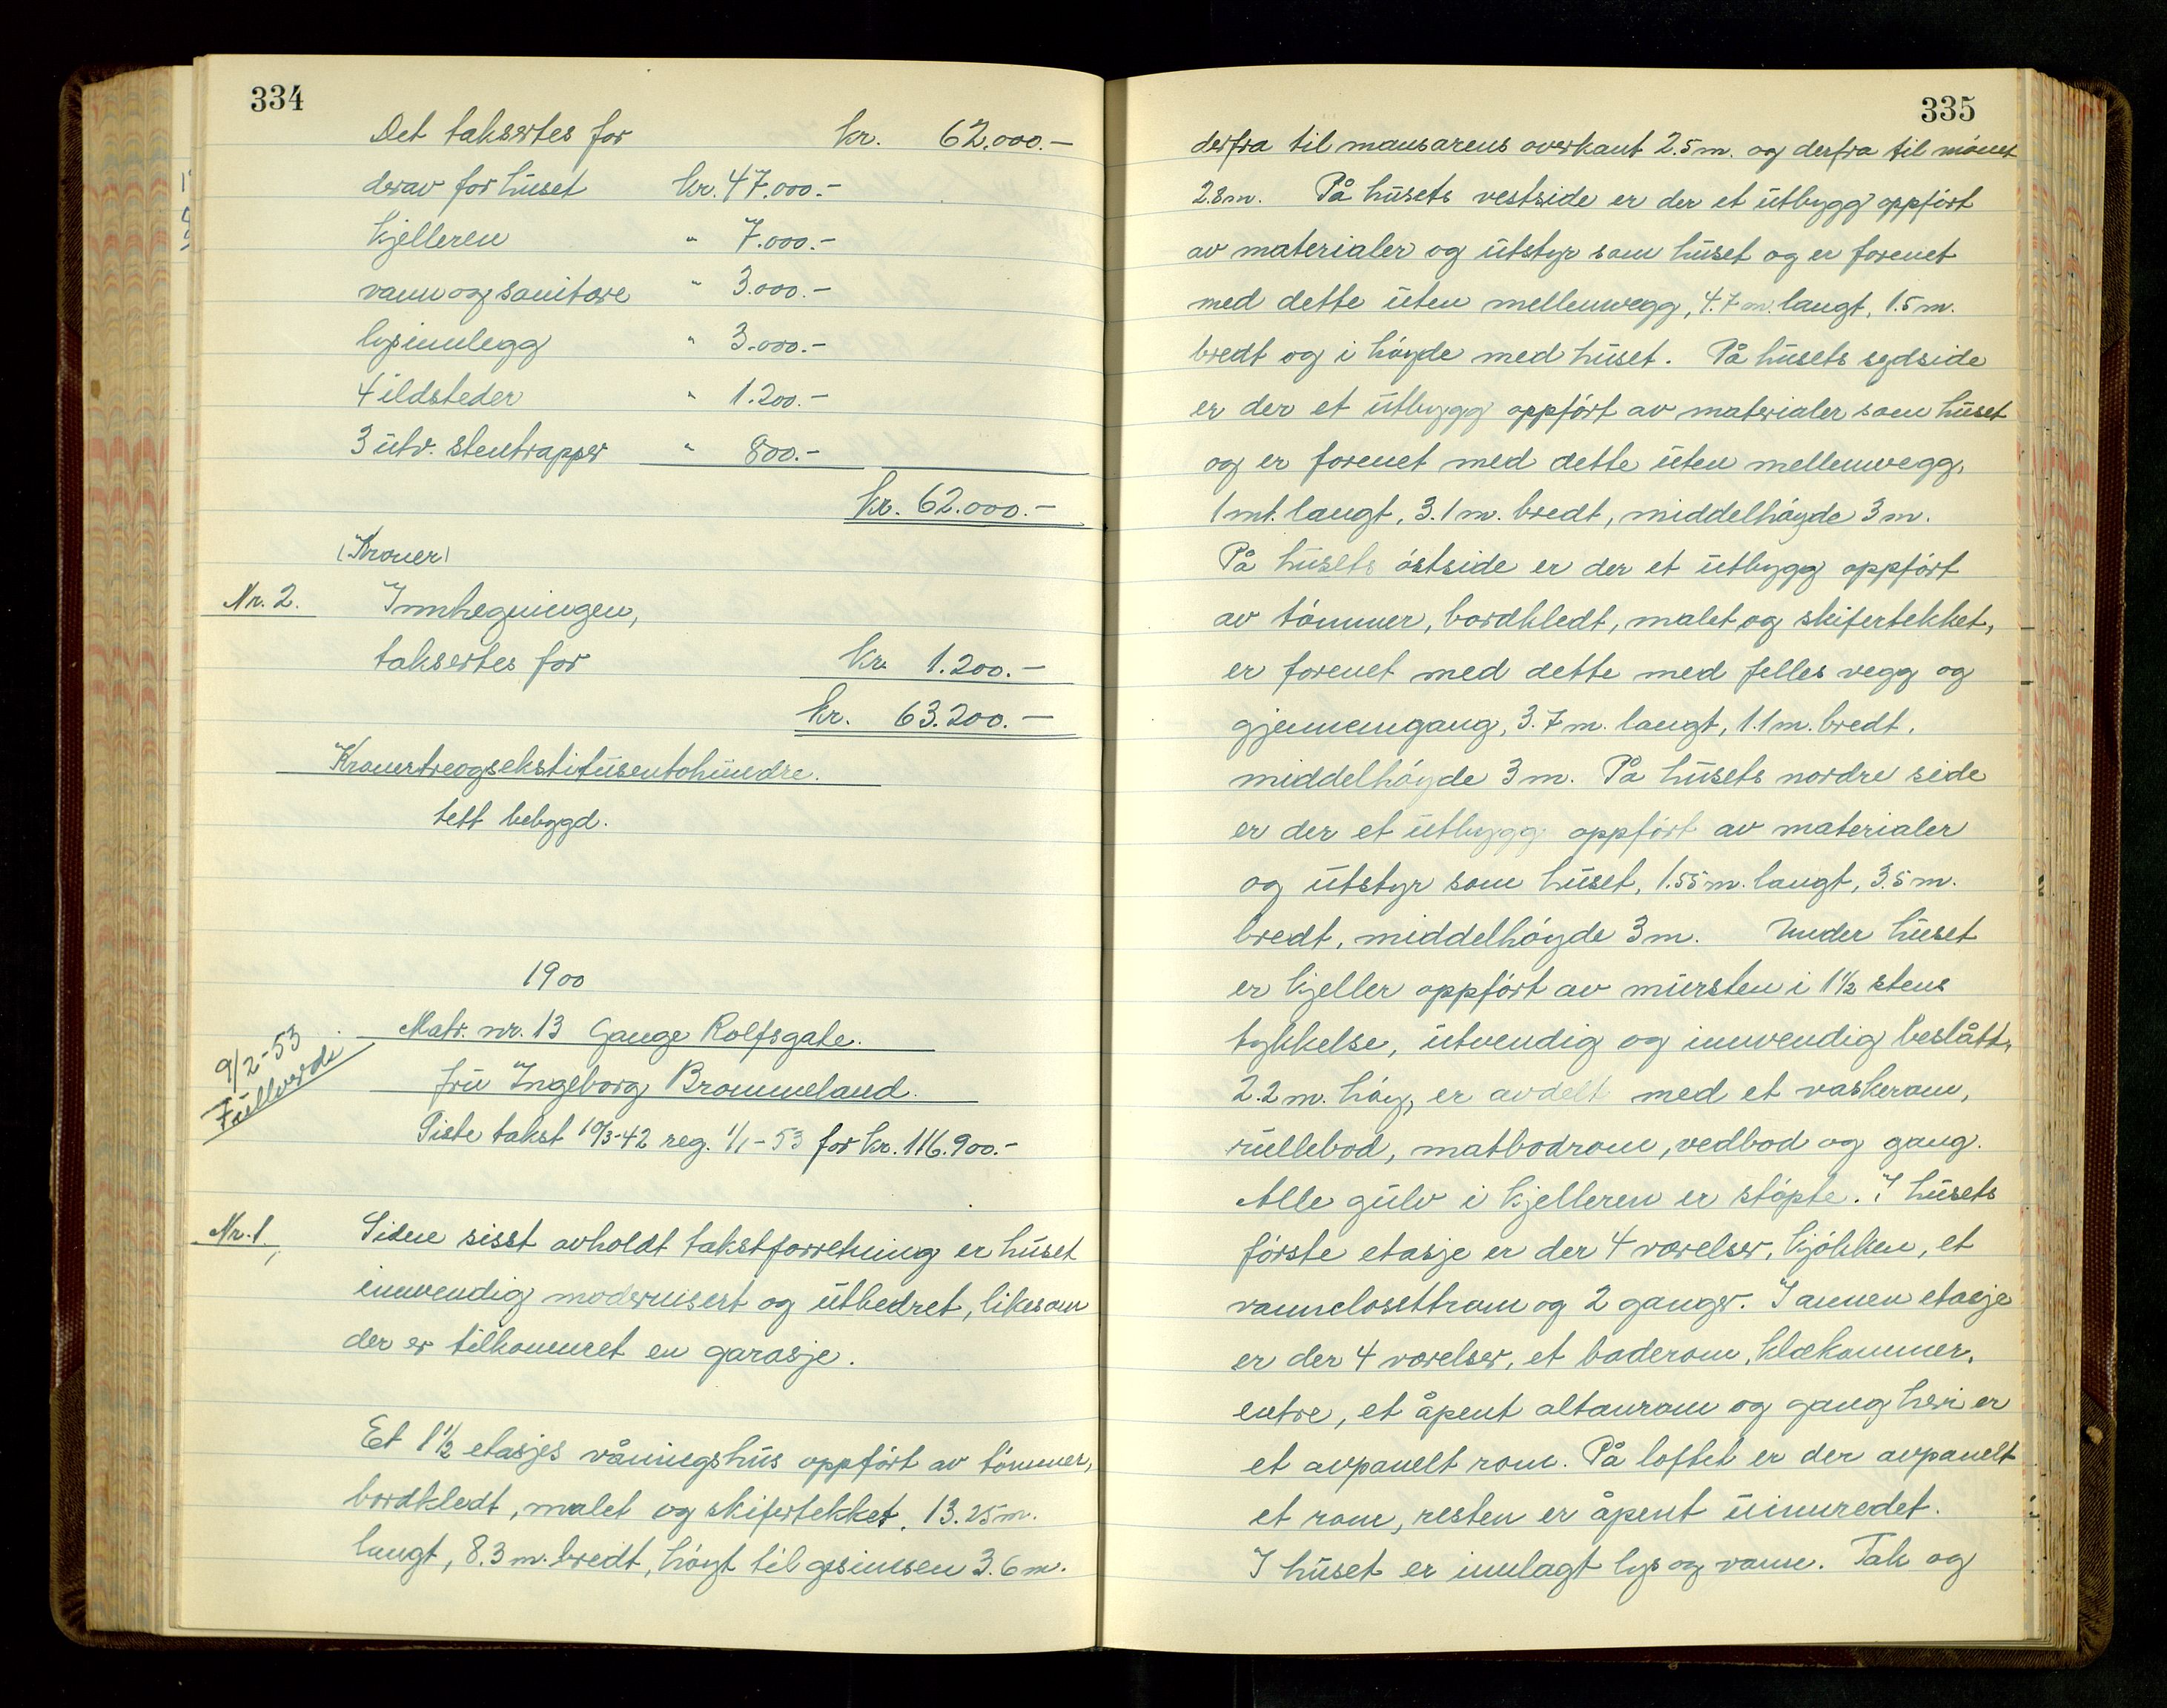 334
Det takseres for kr. 62.000.-
derav for huset kr. 47.000.-
kjelleren " 7.000.-
vann og sanitære " 3.000.-
lysinnlegg " 3.000.-
4 ildsteder " 1.200.-
3 utv. stentrapper " 800.-
kr. 62.000.-
(Kroner)
Nr. 2. Innhegningen,
takseres for kr. 1.200.-
kr. 63.200.-
Kronertreogsekstitusentohundre.
tett bebygd.
1900
Matr. nr. 13 Gange Rolfsgate.
9/2-53
Fullverdi
fru Ingeborg Brommeland.
Siste takst 10/3-42 reg. 1/1-53 for kr. 116.900.-
Nr. 1. Siden sisst avholdt takstforretning er huset
innvendig modernisert og utbedret, likesom
der er tilkommet en garasje.
Et 1 1/2 etasjes våningshus oppført av tømmer,
bordkledt, malet og skifertekket, 13.25 m.
langt, 8.3 m. bredt, høyt til gesimsen 3.6 m.
335
derfra til mansarens overkant 2.5 m. og derfra til mønet
2.8 m. På husets vestside er der et utbygg oppført
av materialer og utstyr som huset og er forenet
med dette uten mellemvegg, 4.7 m. langt, 1.5 m.
bredt og i høyde med huset. På husets sydside
er der et utbygg oppført av materialer som huset
og er forenet med dette uten mellemvegg,
1 mt. langt, 3.1 m. bredt, middelhøyde 3 m.
På husets østside er der et utbygg oppført
av tømmer, bordkledt, malet og skifertekket,
er forenet med dette med felles vegg og
gjennemgang, 3.7 m. langt, 1.1 m. bredt,
middelhøyde 3 m. På husets nordre side
er der et utbygg oppført av materialer
og utstyr som huset, 1.55 m. langt, 3.5 m.
bredt, middelhøyde 3 m. Under huset
er kjeller oppført av mursten i 1 1/2 stens
tykkelse, utvendig og innvendig beslått,
2.2 m. høy, er avdelt med et vaskerom,
rullebod, matbodrom, vedbod og gang.
Alle gulv i kjelleren er støpte. I husets
første etasje er der 4 værelser, kjøkken, et
vannclosettrom og 2 ganger. I annen etasje
er der 4 værelser, et baderom, klækammer,
entre, et åpent altanrom og gang heri er
et avpanelt rom. På loftet er der avpanelt
et rom, resten er åpent uinnredet.
I huset er innlagt lys og vann. Tak og